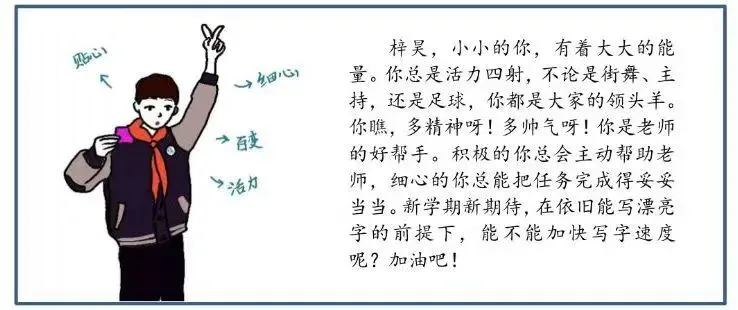 贴心
细心
百变
活力
梓昊，小小的你，有着大大的能
量。你总是活力四射，不论是街舞、主
持，还是足球，你都是大家的领头羊。
你瞧，多精神呀！多帅气呀！你是老师
的好帮手。积极的你总会主动帮助老
师，细心的你总能把任务完成得妥妥
当当。新学期新期待，在依旧能写漂亮
字的前提下，能不能加快写字速度
呢？加油吧！